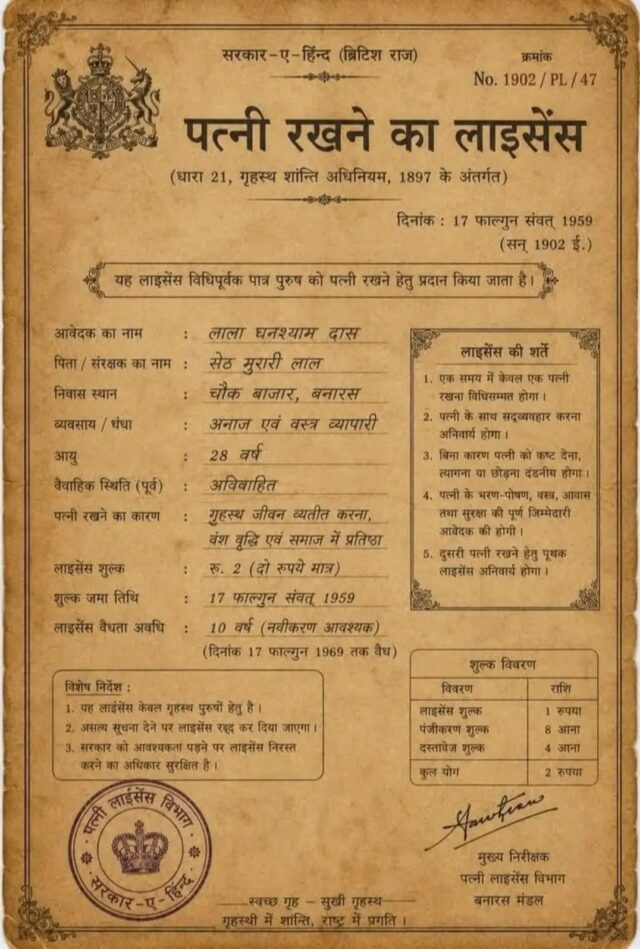 सरकार-ए-हिन्द (ब्रिटिश राज)
क्रमांक
No. 1902 / PL / 47
पत्नी रखने का लाइसेंस
(धारा 21, गृहस्थ शांन्ति अधिनियम, 1897 के अंतर्गत)
दिनांक : 17 फाल्गुन संवत् 1959
(सन् 1902 ई.)
यह लाइसेंस विधिपूर्वक पात्र पुरुष को पत्नी रखने हेतु प्रदान किया जाता है।
आवेदक का नाम : लाला घनश्याम दास
पिता / संरक्षक का नाम : सेठ मुरारी लाल
निवास स्थान : चौक बाजार, बनारस
व्यवसाय / धंधा : अनाज एवं वस्त्र व्यापारी
आयु : 28 वर्ष
वैवाहिक स्थिति (पूर्व) : अविवाहित
पत्नी रखने का कारण : गृहस्थ जीवन व्यतीत करना,
वंश वृद्धि एवं समाज में प्रतिष्ठा
लाइसेंस शुल्क : रु. 2 (दो रूपये मात्र)
शुल्क जमा तिथि : 17 फाल्गुन संवत् 1959
लाइसेंस वैधता अवधि : 10 वर्ष (नवीकरण आवश्यक)
(दिनांक 17 फाल्गुन 1969 तक वैध)
लाइसेंस की शर्ते
1. एक समय में केवल एक पत्नी
रखना विधिसम्मत होगा।
2. पत्नी के साथ सद्व्यवहार करना
अनिवार्य होगा।
3. बिना कारण पत्नी को कष्ट देना,
त्यागना या छोड़ना दंडनीय होगा।
4. पत्नी के भरण-पोषण, वस्त्र, आवास
तथा सुरक्षा की पूर्ण जिम्मेदारी
आवेदक की होगी।
5. दुसरी पत्नी रखने हेतु पृथक
लाइसेंस अनिवार्य होगा।
विशेष निर्देश :
1. यह लाइसेंस केवल गृहस्थ पुरुषों हेतु है।
2. असत्य सूचना देने पर लाइसेंस रद्द कर दिया जाएगा।
3. सरकार को आवश्यकता पड़ने पर लाइसेंस निरस्त
करने का अधिकार सुरक्षित है।
शुल्क विवरण
विवरण राशि
लाइसेंस शुल्क 1 रुपया
पंजीकरण शुल्क 8 आना
दस्तावेज शुल्क 4 आना
कुल योग 2 रुपया
पत्नी लाईसेंस विभाग
सरकार-ए-हिन्द
मुख्य निरीक्षक
पत्नी लाइसेंस विभाग
बनारस मंडल
स्वच्छ गृह - सुखी गृहस्थ
गृहस्थी में शांन्ति, राष्ट्र में प्रगति।